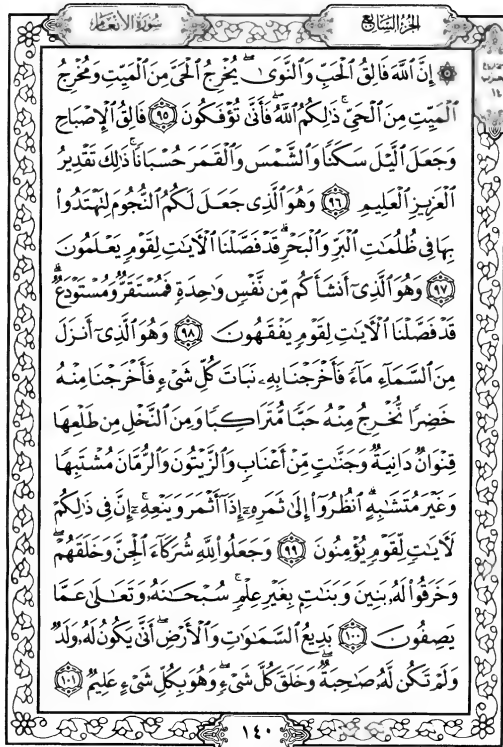 الجزء السابع
سورة الأنعام
۞ إِنَّ ٱللَّهَ فَالِقُ ٱلْحَبِّ وَٱلنَّوَىٰۖ يُخْرِجُ ٱلْحَىَّ مِنَ ٱلْمَيِّتِ وَمُخْرِجُ
ٱلْمَيِّتِ مِنَ ٱلْحَىِّۚ ذَٰلِكُمُ ٱللَّهُۖ فَأَنَّىٰ تُؤْفَكُونَ ٩٥ فَالِقُ ٱلْإِصْبَاحِ
وَجَعَلَ ٱلَّيْلَ سَكَنًا وَٱلشَّمْسَ وَٱلْقَمَرَ حُسْبَانًاۚ ذَٰلِكَ تَقْدِيرُ
ٱلْعَزِيزِ ٱلْعَلِيمِ ٩٦ وَهُوَ ٱلَّذِى جَعَلَ لَكُمُ ٱلنُّجُومَ لِتَهْتَدُوا۟
بِهَا فِى ظُلُمَٰتِ ٱلْبَرِّ وَٱلْبَحْرِۗ قَدْ فَصَّلْنَا ٱلْءَايَٰتِ لِقَوْمٍ يَعْلَمُونَ
٩٧ وَهُوَ ٱلَّذِىٓ أَنشَأَكُم مِّن نَّفْسٍ وَٰحِدَةٍ فَمُسْتَقَرٌّ وَمُسْتَوْدَعٌۗ
قَدْ فَصَّلْنَا ٱلْءَايَٰتِ لِقَوْمٍ يَفْقَهُونَ ٩٨ وَهُوَ ٱلَّذِىٓ أَنزَلَ
مِنَ ٱلسَّمَآءِ مَآءً فَأَخْرَجْنَا بِهِۦ نَبَاتَ كُلِّ شَىْءٍ فَأَخْرَجْنَا مِنْهُ
خَضِرًا نُّخْرِجُ مِنْهُ حَبًّا مُّتَرَاكِبًا وَمِنَ ٱلنَّخْلِ مِن طَلْعِهَا
قِنْوَانٌ دَانِيَةٌ وَجَنَّٰتٍ مِّنْ أَعْنَابٍ وَٱلزَّيْتُونَ وَٱلرُّمَّانَ مُشْتَبِهًا
وَغَيْرَ مُتَشَٰبِهٍۗ ٱنظُرُوٓا۟ إِلَىٰ ثَمَرِهِۦٓ إِذَآ أَثْمَرَ وَيَنْعِهِۦٓۚ إِنَّ فِى ذَٰلِكُمْ
لَءَايَٰتٍ لِّقَوْمٍ يُؤْمِنُونَ ٩٩ وَجَعَلُوا۟ لِلَّهِ شُرَكَآءَ ٱلْجِنَّ وَخَلَقَهُمْۖ
وَخَرَقُوا۟ لَهُۥ بَنِينَ وَبَنَٰتٍۭ بِغَيْرِ عِلْمٍۚ سُبْحَٰنَهُۥ وَتَعَٰلَىٰ عَمَّا
يَصِفُونَ ١٠٠ بَدِيعُ ٱلسَّمَٰوَٰتِ وَٱلْأَرْضِۖ أَنَّىٰ يَكُونُ لَهُۥ وَلَدٌ
وَلَمْ تَكُن لَّهُۥ صَٰحِبَةٌۖ وَخَلَقَ كُلَّ شَىْءٍۖ وَهُوَ بِكُلِّ شَىْءٍ عَلِيمٌ ١٠١
١٤٠